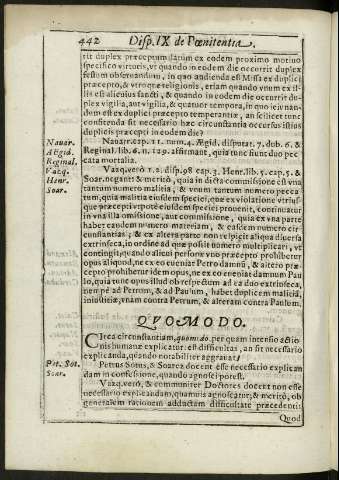 442 Disp. IX de Pœnitentia.
rit duplex præceptum latum ex eodem proximo motivo
specifico virtutis, vt quando in eodem die occurrit duplex
festum observandum, in quo audienda est Missa ex duplici
præcepto, & vtroque religionis, etiam quando vnum ex il-
lis est alicuius sancti, & quando in eodem die occurrit du-
plex vigilia, aut vigilia, & quatuor tempora, in quo ieiunan-
dum est ex duplici præcepto temperantiæ, an scilicet tunc
confitenda sit necessario hæc circunstantia occursus istius
duplicis præcepti in eodem die?
Nauar. cap. 11. num. 4. Ægid. disputat. 7. dub. 6. &
Reginal. lib. 6. n. 129. affirmant, quia tunc fiunt duo pec-
cata mortalia.
Nauar.
Ægid.
Reginal.
Vazq.
Henr.
Soar.
Vazq. verò 1. 2. disp. 98 cap. 3. Henr. lib. 5. cap. 5. &
Soar. negant: & meritò, quia in dicta commissione est vna
tantum numero malitia, & vnum tantum numero pecca-
tum, quia malitia eiusdem speciei, quæ ex violatione vtrius-
que præcepti vtpotè eiusdem speciei prouenit, continuatur
in vna illa omissione, aut commissione, quia ex vna parte
habet eandem numero materiam, & easdem numero cir-
cunstantias; & ex altera parte non respicit aliqua diuersa
extrinseca, in ordine ad quæ possit numero multiplicari, vt
contingit, quando alicui personæ vno præcepto prohibetur
opus aliquod, ne ex eo eueniat Petro damnũ, & altero præ-
cepto prohibetur idem opus, ne ex eo eueniat damnum Pau
lo, quia tunc opus illud ob respectum ad ea duo extrinseca,
nempè ad Petrum, & ad Paulum, habet duplicem malitiã,
iniustitiæ, vnam contra Petrum, & alteram contra Paulum.
QVOMODO.
Circa circunstantiam, quomodo, per quam intensio actio-
nis humanæ explicatur, est difficultas, an sit necessariò
explicanda, quando notabiliter aggrauat?
Pet. Sot.
Soar.
Petrus Sotus, & Soarez docent esse necessario explican
dam in confessione, quando agnosci potest.
Vazq. verò, & communiter Doctores docent non esse
necessario explicandam, quamuis agnoscatur; & meritò, ob
generalem rationem adductam difficultate præcedenti
Quod